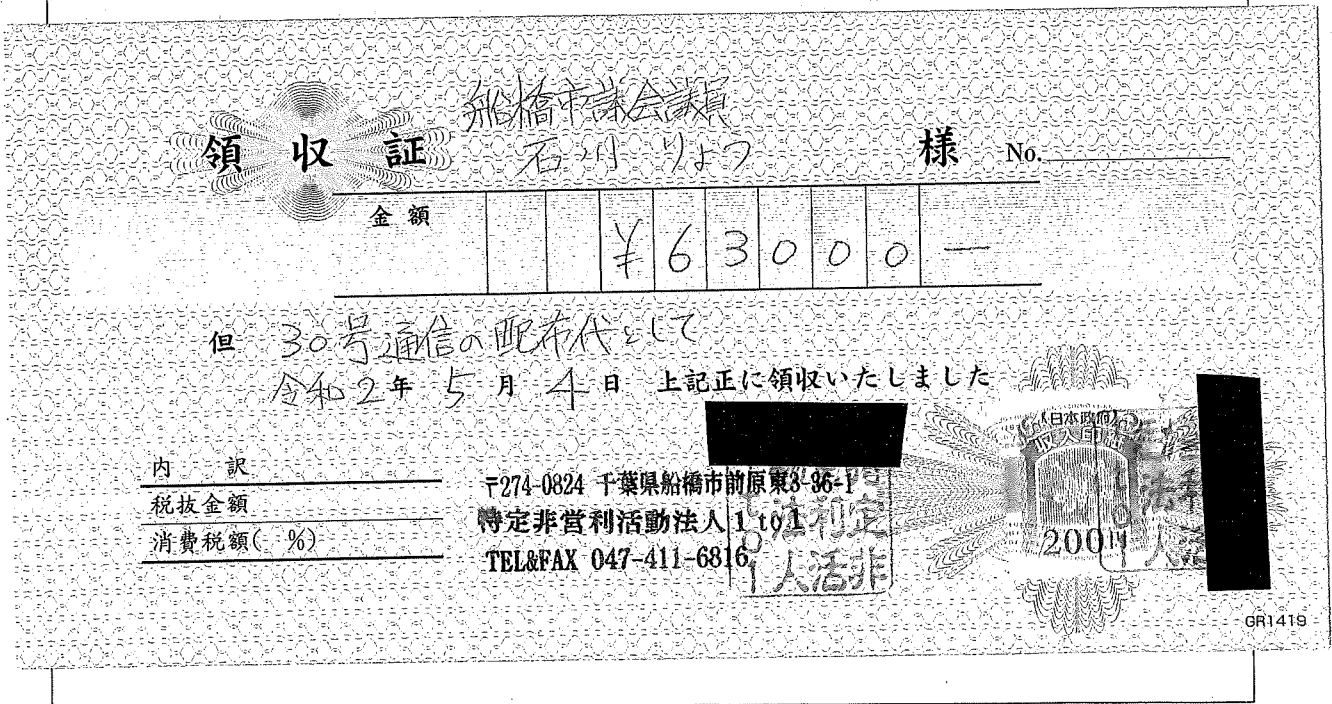 船橋市議会議員
領収証 石川 りょう 様 No.
金額 ¥63000―
但 30号通信の配布代として
令和2年 5月 4日 上記正に領収いたしました
内訳
税抜金額
消費税額( %)
〒274-0824 千葉県船橋市前原東3-96-1
特定非営利活動法人1to1
TEL&FAX 047-411-6816
日本政府
収入印紙
200円
GR1419